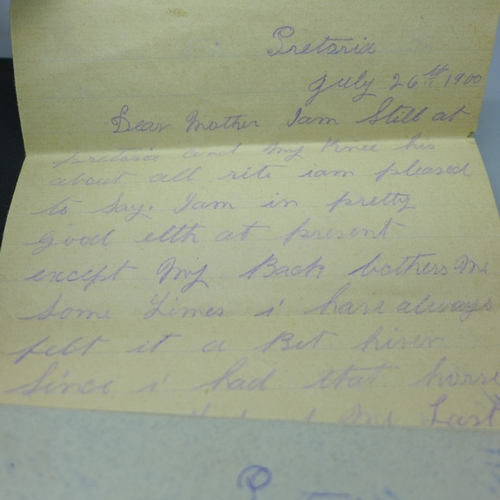 Pretoria
July 26th 1900
Dear Mother I am Still at
pretoria and My Knee his
about all rite iam pleased
to Say. I am in pretty
good elth at present
except My Back bothers Me
Some times i have always
felt it a Bet hiver
Since i had that horse
Me Last